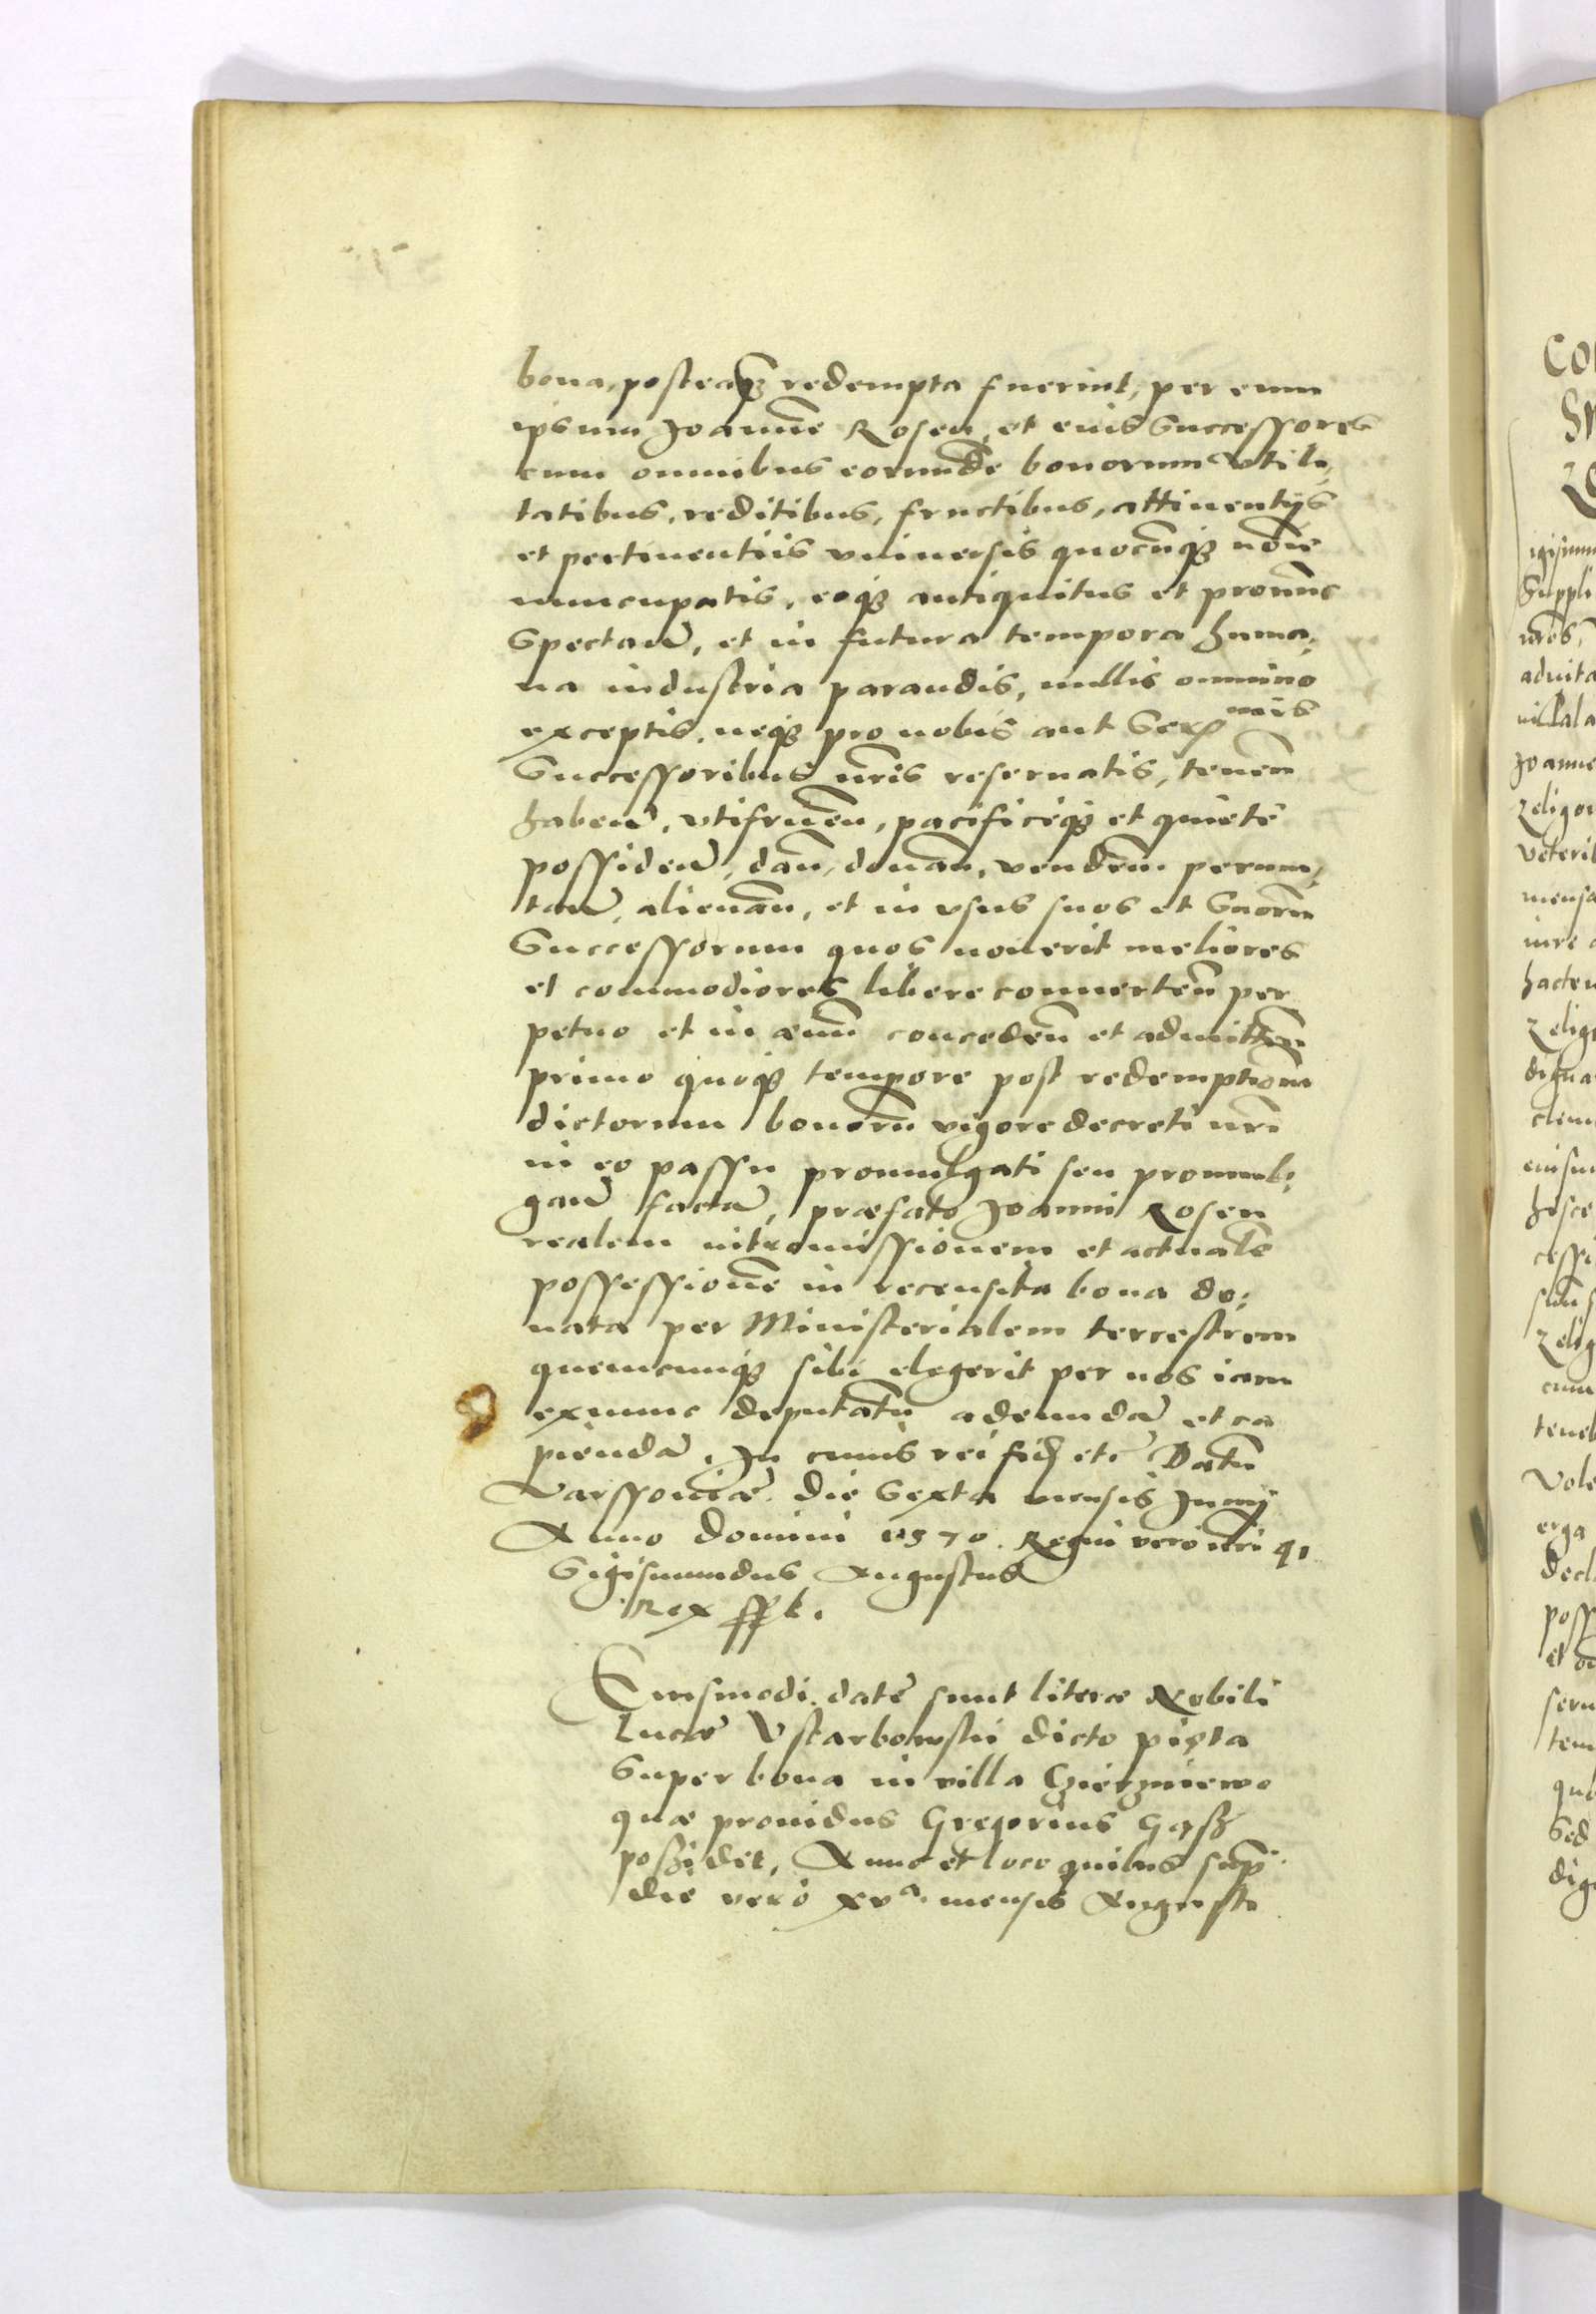 bona, posteaq̃ redempta fuerint, per eum
ipsum Joannē Rosen, et eius Successores
cum omnibus eorundē bonorum vtili,
tatibus, reditibus, fructibus, attinentijs
et pertinentiis vniuersis quocunq̃ noīe
nuncupatis, eoq̃ antiquitus et pronūc
Spectań, et in futura tempora huma,
na industria parandis, nullis omnino
exceptis, neq̃ pro nobis aut Serͫⁿⁱˢ
Successoribus nr̃is reseruatis, tenēn
habeń, vtifruēn, pacificeq̃ et quietē
possideń, dań, donań, vendēn. permu,
tań, alienań, et in vsus suos et Suorū
Successorum quos nouerit meliores
et commodiores libere conuertēn per
petuo et in æuū concedēn et admittēn
primo quoq̃ tempore post redemptionē
dictorum bonorū vigore decreti nr̃i
in eo passu promulgati seu promul,
gań factā, præfato Joanni Rosen
realem intromissionem et actualē
possessionē in recensita bona do,
nata per Ministerialem terrestrem
quemcunq̃ sibi elegerit per nos iam
exnunc deputatū adeundā et ca
piendā. In cuius rei fid etc Datū
Varssouiæ. die Sexta mensis Junij
Anno domini 1570. Regni vero nr̃i 41
Sigismundus Augustus
Rex sspt.
Eiusmodi datē sunt literæ Nobili
Lucæ Vstarbowskii dicto pięta
Super bona in villa Czierzniewo
quæ prouidus Gregorius Gąsz
possidet, Anno et loco quibus sup̃.
die vero xvᵃ. mensis Augusti